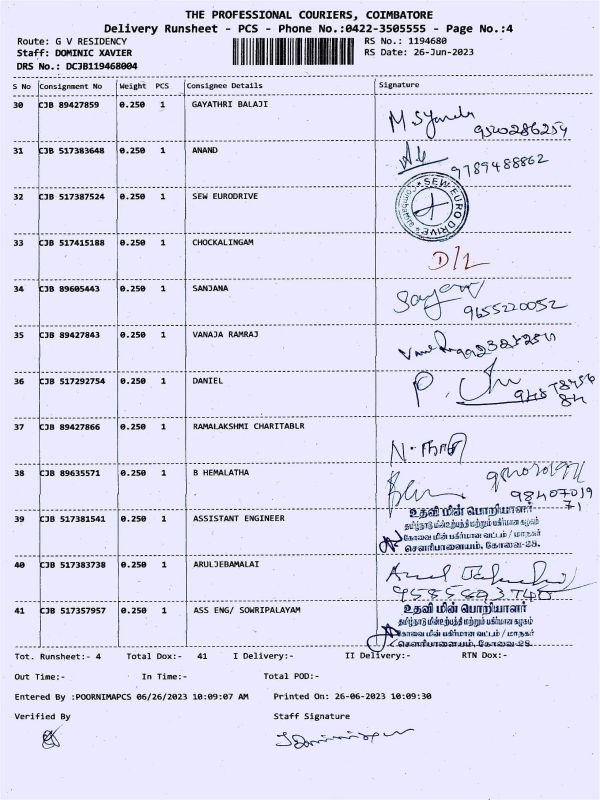 THE PROFESSIONAL COURIERS, COIMBATORE
Delivery Runsheet - PCS - Phone No.:0422-3505555 - Page No.:4
Route: G V RESIDENCY
RS No.: 1194680
Staff: DOMINIC XAVIER
RS Date: 26-Jun-2023
DRS No.: DCJB119468004
S No Consignment No Weight PCS Consignee Details Signature
30 CJB 89427859 0.250 1 GAYATHRI BALAJI
9540286259
31 CJB 517383648 0.250 1 ANAND
9789488862
32 CJB 517387524 0.250 1 SEW EURODRIVE SEW EURO DRIVE
33 CJB 517415188 0.250 1 CHOCKALINGAM D/L
34 CJB 89605443 0.250 1 SANJANA
9655220052
35 CJB 89427843 0.250 1 VANAJA RAMRAJ
36 CJB 517292754 0.250 1 DANIEL
37 CJB 89427866 0.250 1 RAMALAKSHMI CHARITABLR
38 CJB 89635571 0.250 1 B HEMALATHA
98407019
71
39 CJB 517381541 0.250 1 ASSISTANT ENGINEER
உதவி மின் பொறியாளர்
தமிழ்நாடு மின்உற்பத்தி மற்றும் பகிர்மான கழகம்
கோவை மின் பகிர்மான வட்டம் / மாநகர்
சௌரிபாளையம், கோவை-28.
40 CJB 517383738 0.250 1 ARULJEBAMALAI
9585593740
41 CJB 517357957 0.250 1 ASS ENG/ SOWRIPALAYAM
உதவி மின் பொறியாளர்
தமிழ்நாடு மின்உற்பத்தி மற்றும் பகிர்மான கழகம்
கோவை மின் பகிர்மான வட்டம் / மாநகர்
சௌரிபாளையம், கோவை-28.
Tot. Runsheet:- 4 Total Dox:- 41 I Delivery:- II Delivery:- RTN Dox:-
Out Time:- In Time:- Total POD:-
Entered By :POORNIMAPCS 06/26/2023 10:09:07 AM Printed On: 26-06-2023 10:09:30
Verified By Staff Signature